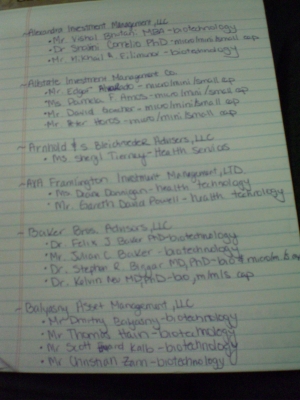 ~Alexandra Investment Management, LLC
• Mr. Vishal Bhutani MBA - biotechnology
• Dr. Camelio PhD - micro/mini/small cap
• Mr. Mikhail E. Filimonov - biotechnology
~Investment Management Co.
• Mr. Edgar - micro/mini/small cap
• Ms. F. Amos - micro/mini/small cap
• Mr. David - micro/mini/small cap
• Mr. Peter - micro/mini/small cap
~Arnhold & S. Bleichroeder Advisers, LLC
• Ms. Sheryl Tierney - Health Services
~AXA Framlington Investment Management, LTD.
• Ms. Diana Donnigan - health technology
• Mr. Gareth David Powell - health technology
~Baker Bros. Advisors, LLC
• Dr. Felix J. Baker PhD - biotechnology
• Mr. Julian C. Baker - biotechnology
• Dr. Stephen R. Biggar MD, PhD - bio & cap
• Dr. Kelvin Neu MD, PhD - bio, m/m/s cap
~Balyasny Asset Management, LLC
• Mr. Dmitry Balyasny - biotechnology
• Mr. Thomas Hain - biotechnology
• Mr. Scott Kolb - biotechnology
• Mr. Christian Zann - biotechnology